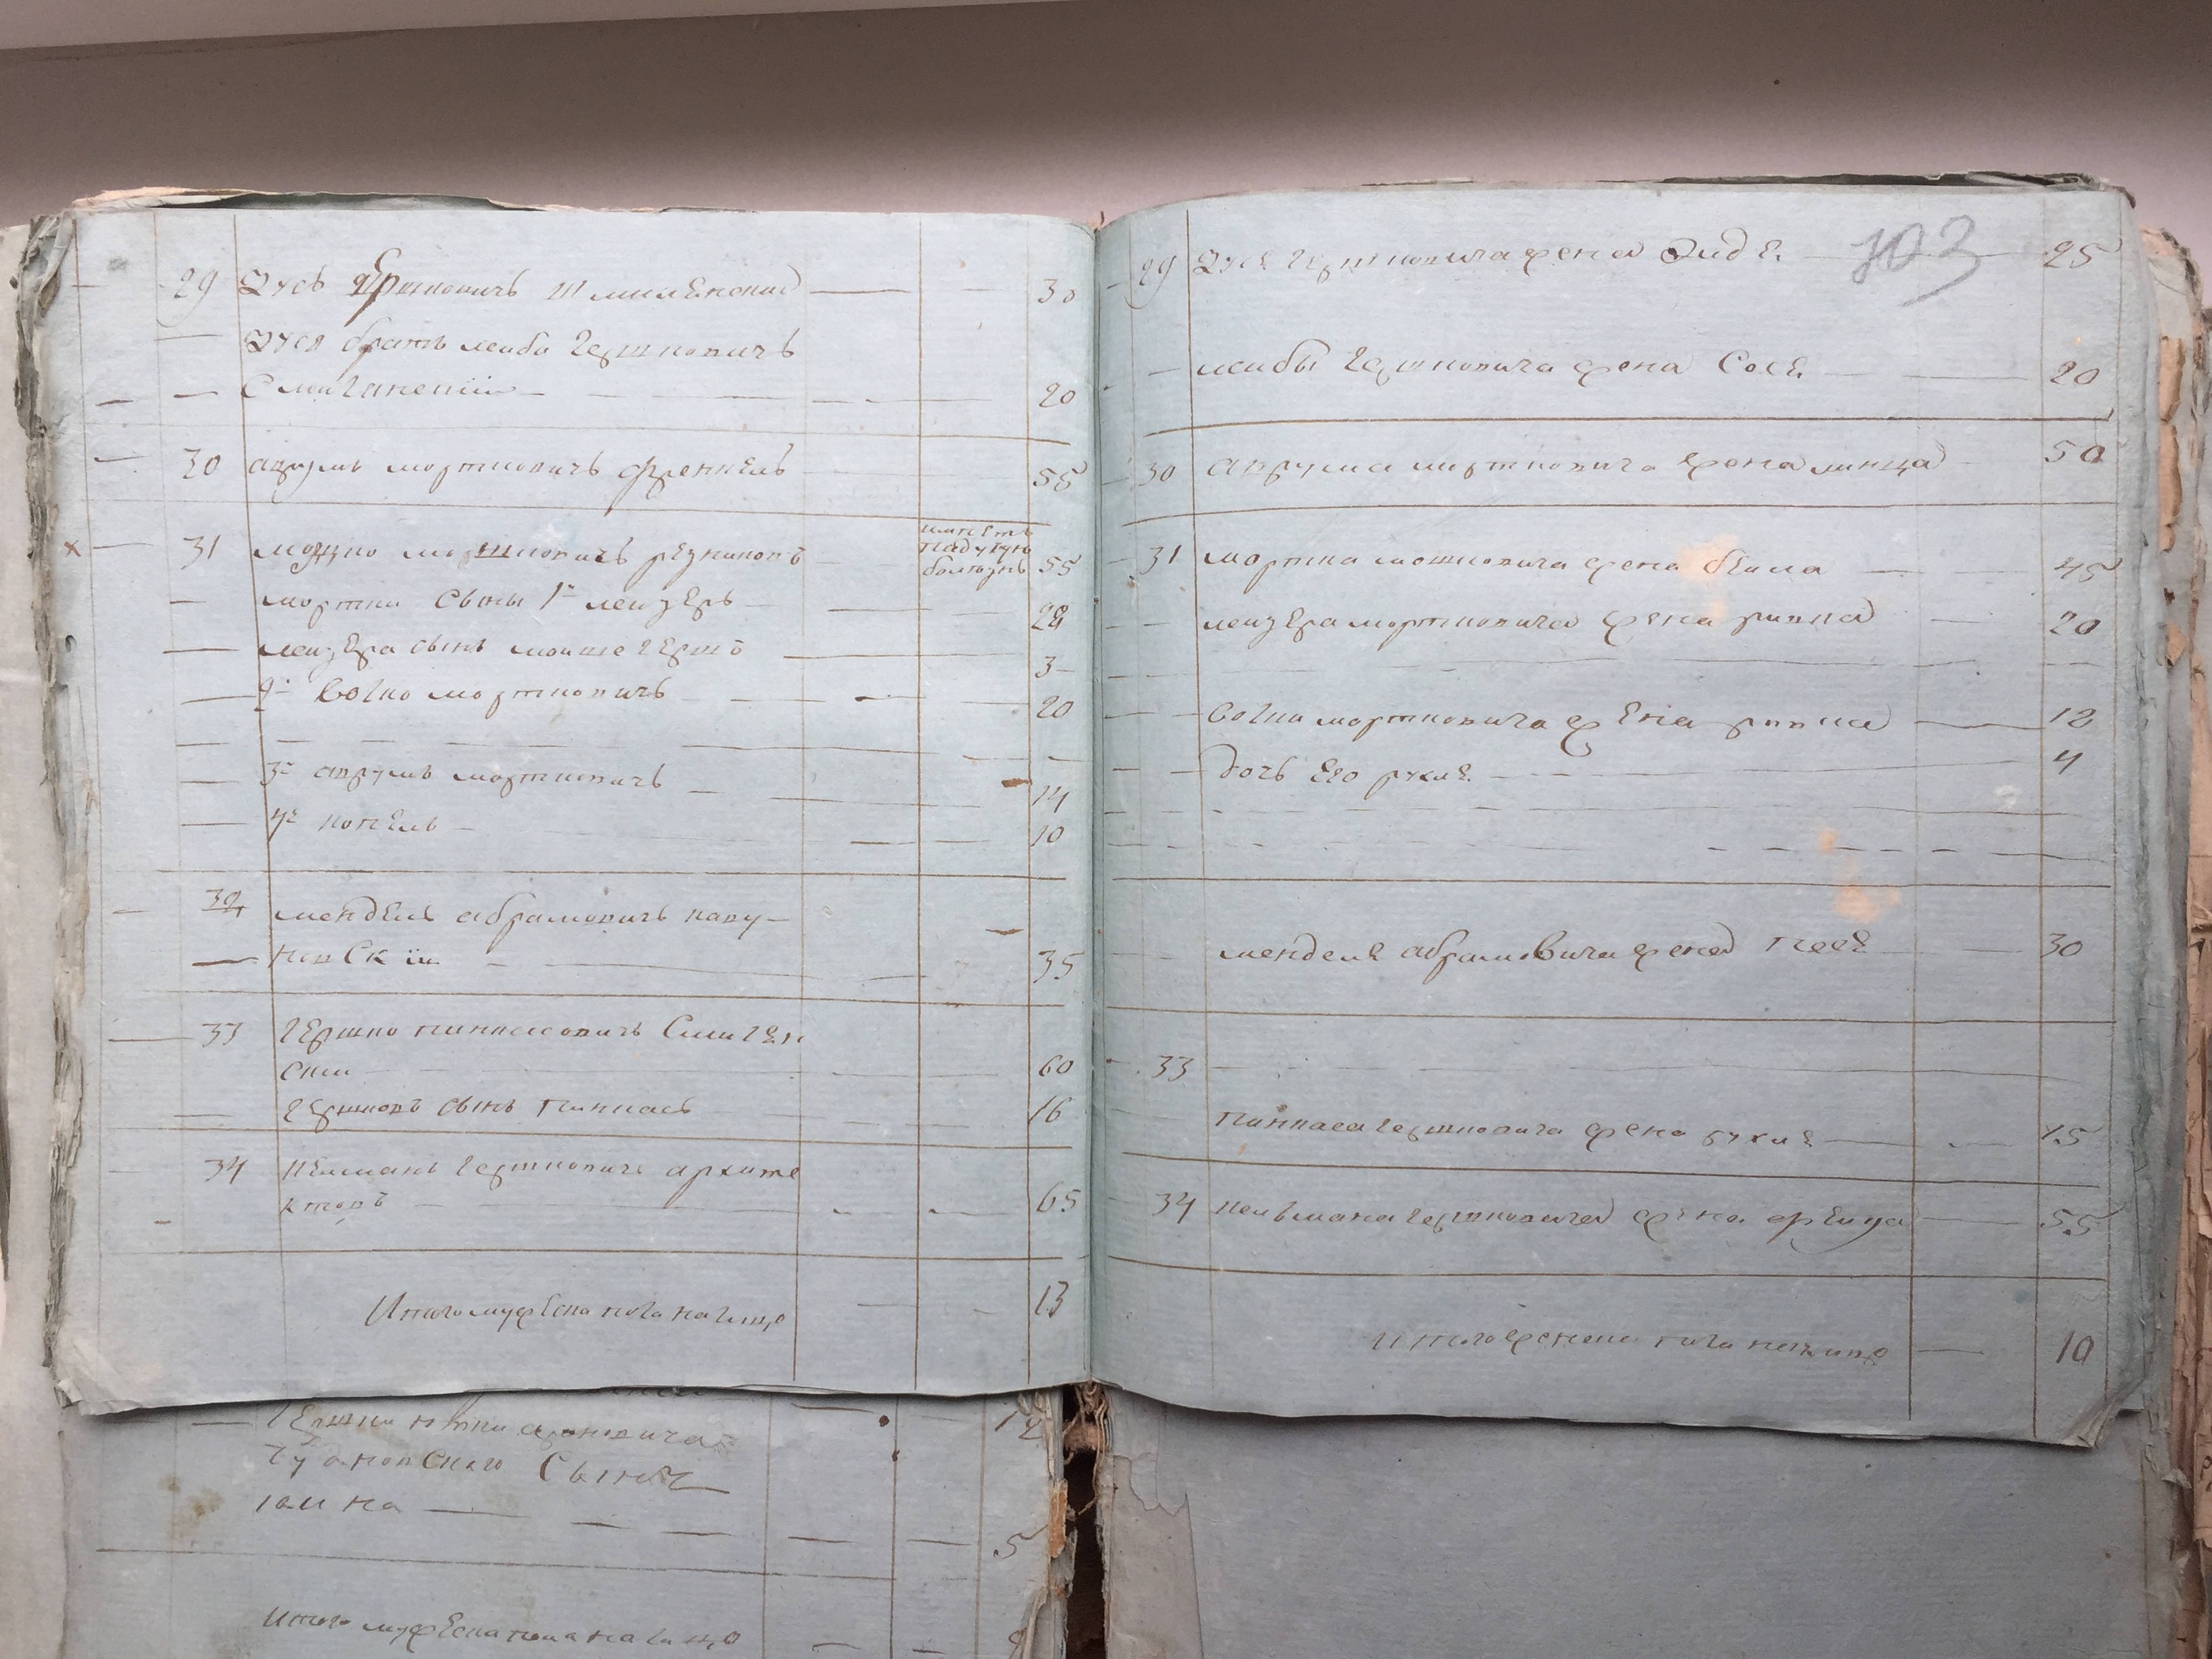 29 Зусь Гершковичъ Шмиленский 30
Зуся братъ лейба Гершковичъ
Смиганский 20
30 аврумъ мортковичъ Френкель 55
имѣетъ
падучую
болѣзнь
31 мортко мошковичъ резниковъ 55
мортки сыны 1й лейзеръ 28
лейзера сынъ мойше гершъ 3
2й Волко мортковичъ 20
3й аврумъ мортковичъ 14
4й копель 10
32 мендель абрамовичъ
35
33 Гершко пинкасовичъ Смиген
ский 60
Гершковъ сынъ пинкасъ 16
34 кельманъ Гершковичъ архите
кторъ 65
Итого мужеска пола налицо 13
103
29 Зуся Гершковича жена Эйдя 25
лейбы Гершковича жена Сося 20
30 аврума мортковича жена 50
31 мортка мошковича жена бейла 45
лейзера мортковича жена ривка 20
Волки мортковича жена ривка 18
дочь его рухля 4
менделя абрамовича жена песя 30
33
пинкаса Гершковича жена рухля 15
34 кельмана Гершковича жена фейга 55
Итого женска пола налицо 10
12
Сынъ
5
Итого мужеска пола налицо 9